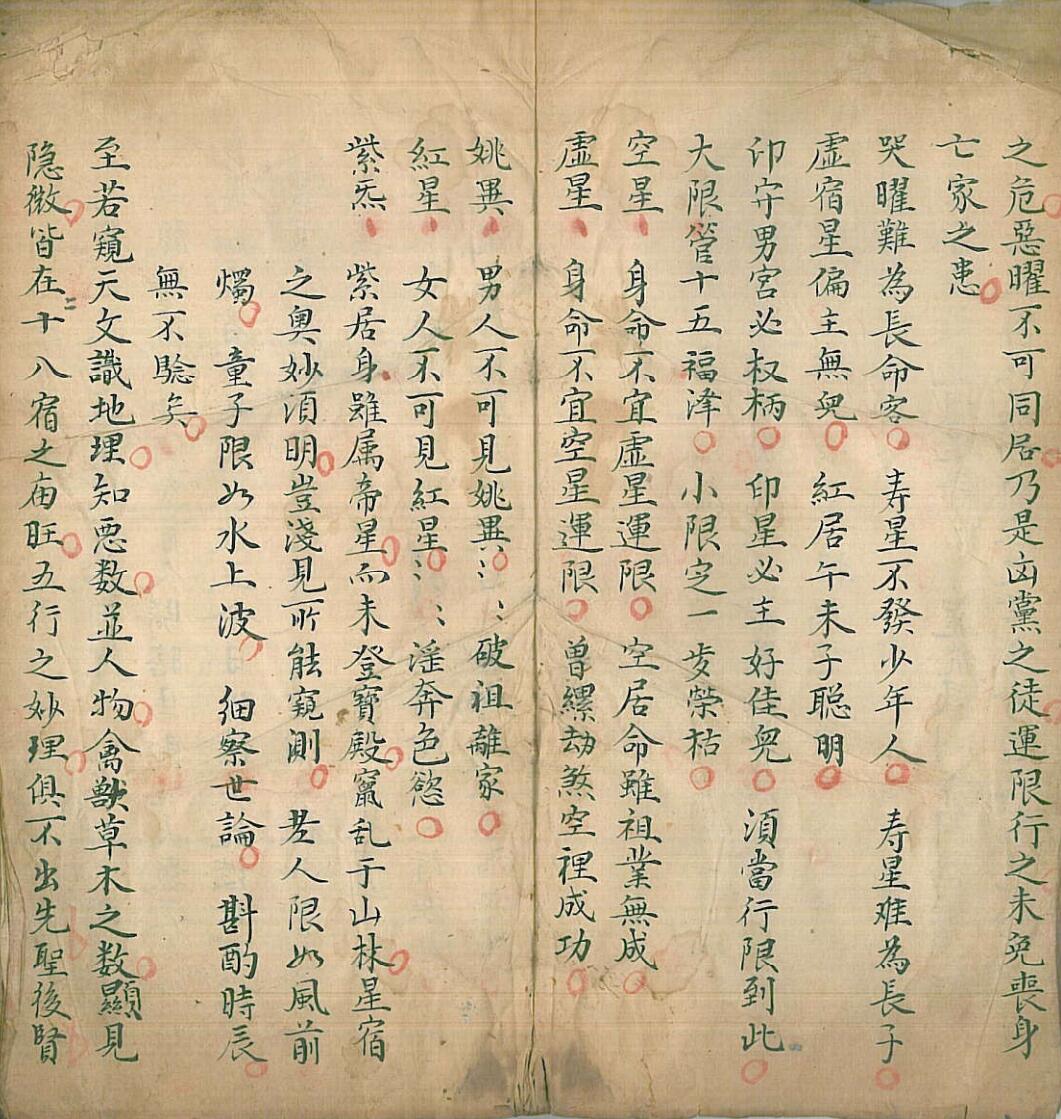 之危惡曜不可同居乃是凶黨之徒運限行之未免喪身
亡家之患
哭曜難為長命客 寿星不發少年人 寿星难為長子
虛宿星偏主無兒 紅居午未子聪明
印守男宮必权柄 印星必主好佳兒 湏當行限到此
大限管十五福泽 小限定一步荣枯
空星 身命不宜虛星運限 空居命雖祖業無成
虛星 身命不宜空星運限 曾縲劫煞空裡成功
姚異 男人不可見姚異:: 破祖離家
紅星 女人不可見紅星:: 滛奔色慾
紫炁 紫居身雖属帝星而未登寶殿竄乱于山林星宿
之奥妙湏明豈淺見所能窺測 老人限如風前
燭 童子限如水上波 细察世論 斟酌時辰
無不騐矣
至若窺天文識地理知悪数並人物禽獸草木之数顯見
隐微皆在十八宿之庙旺五行之妙理俱不出先聖後賢